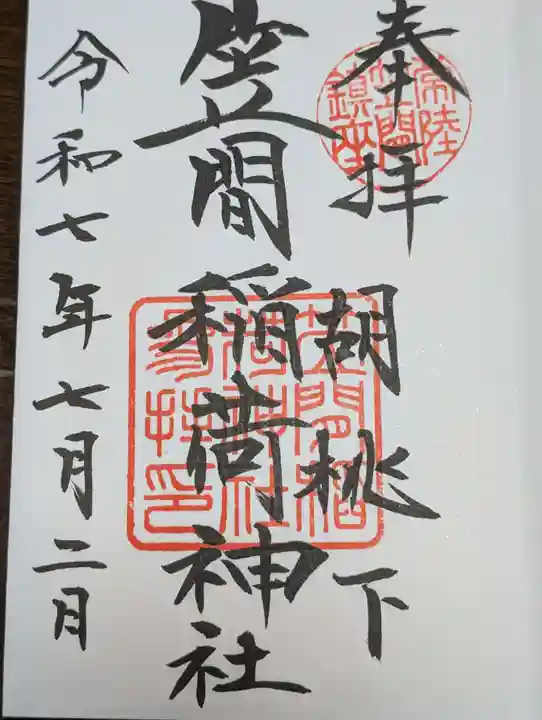 奉拝
胡桃下
常陸
笠間
鎮座
笠間稲荷神社
笠間稲
荷神社
参拝印
令和七年七月二日